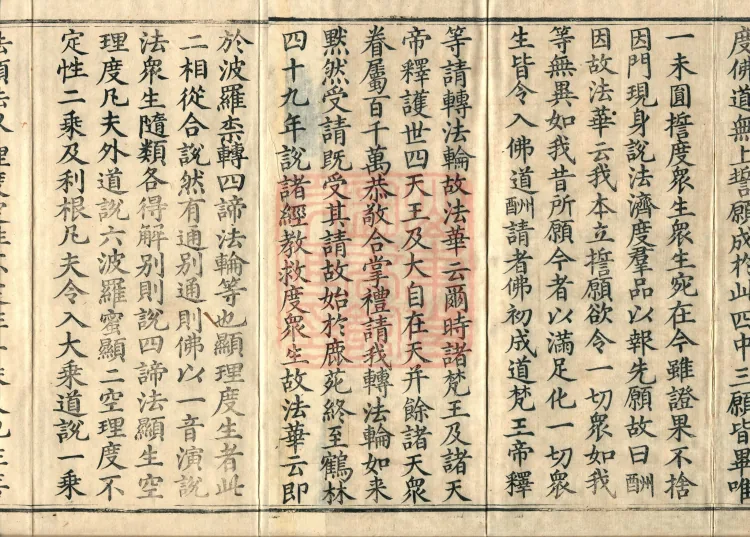 度佛道無上誓願成於此四中三願皆畢唯
一未圓誓度衆生衆生宛在今雖證果不捨
因門現身說法濟度羣品以報先願故曰酬
因故法華云我本立誓願欲令一切衆如我
等無異如我昔所願今者以滿足化一切衆
生皆令入佛道酬請者佛初成道梵王帝釋
等請轉法輪故法華云爾時諸梵王及諸天
帝釋護世四天王及大自在天并餘諸天衆
眷屬百千萬恭敬合掌禮請我轉法輪如来
黙然受請既受其請故始於鹿苑終至鶴林
四十九年說諸經教救度衆生故法華云即
於波羅柰轉四諦法輪等也顯理度生者此
二相從合說然有通別通則佛以一音演說
法衆生隨類各得解別則說四諦法顯生空
理度凡夫外道說六波羅蜜顯二空理度不
定性二乗及利根凡夫令入大乗道說一乗